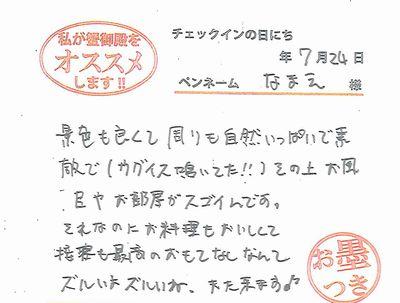 私が蟹御殿を
オススメ
します!!
チェックインの日にち
年7月24日
ペンネーム なまえ 様
景色も良くて周りも自然いっぱいで素
敵で(ウグイス鳴いてた!!)その上お風
呂やお部屋がスゴイんです。
それなのにお料理もおいしくて
接客も最高のおもてなしなんて
ズルいよズルいわ、また来ます♪
お墨
つき